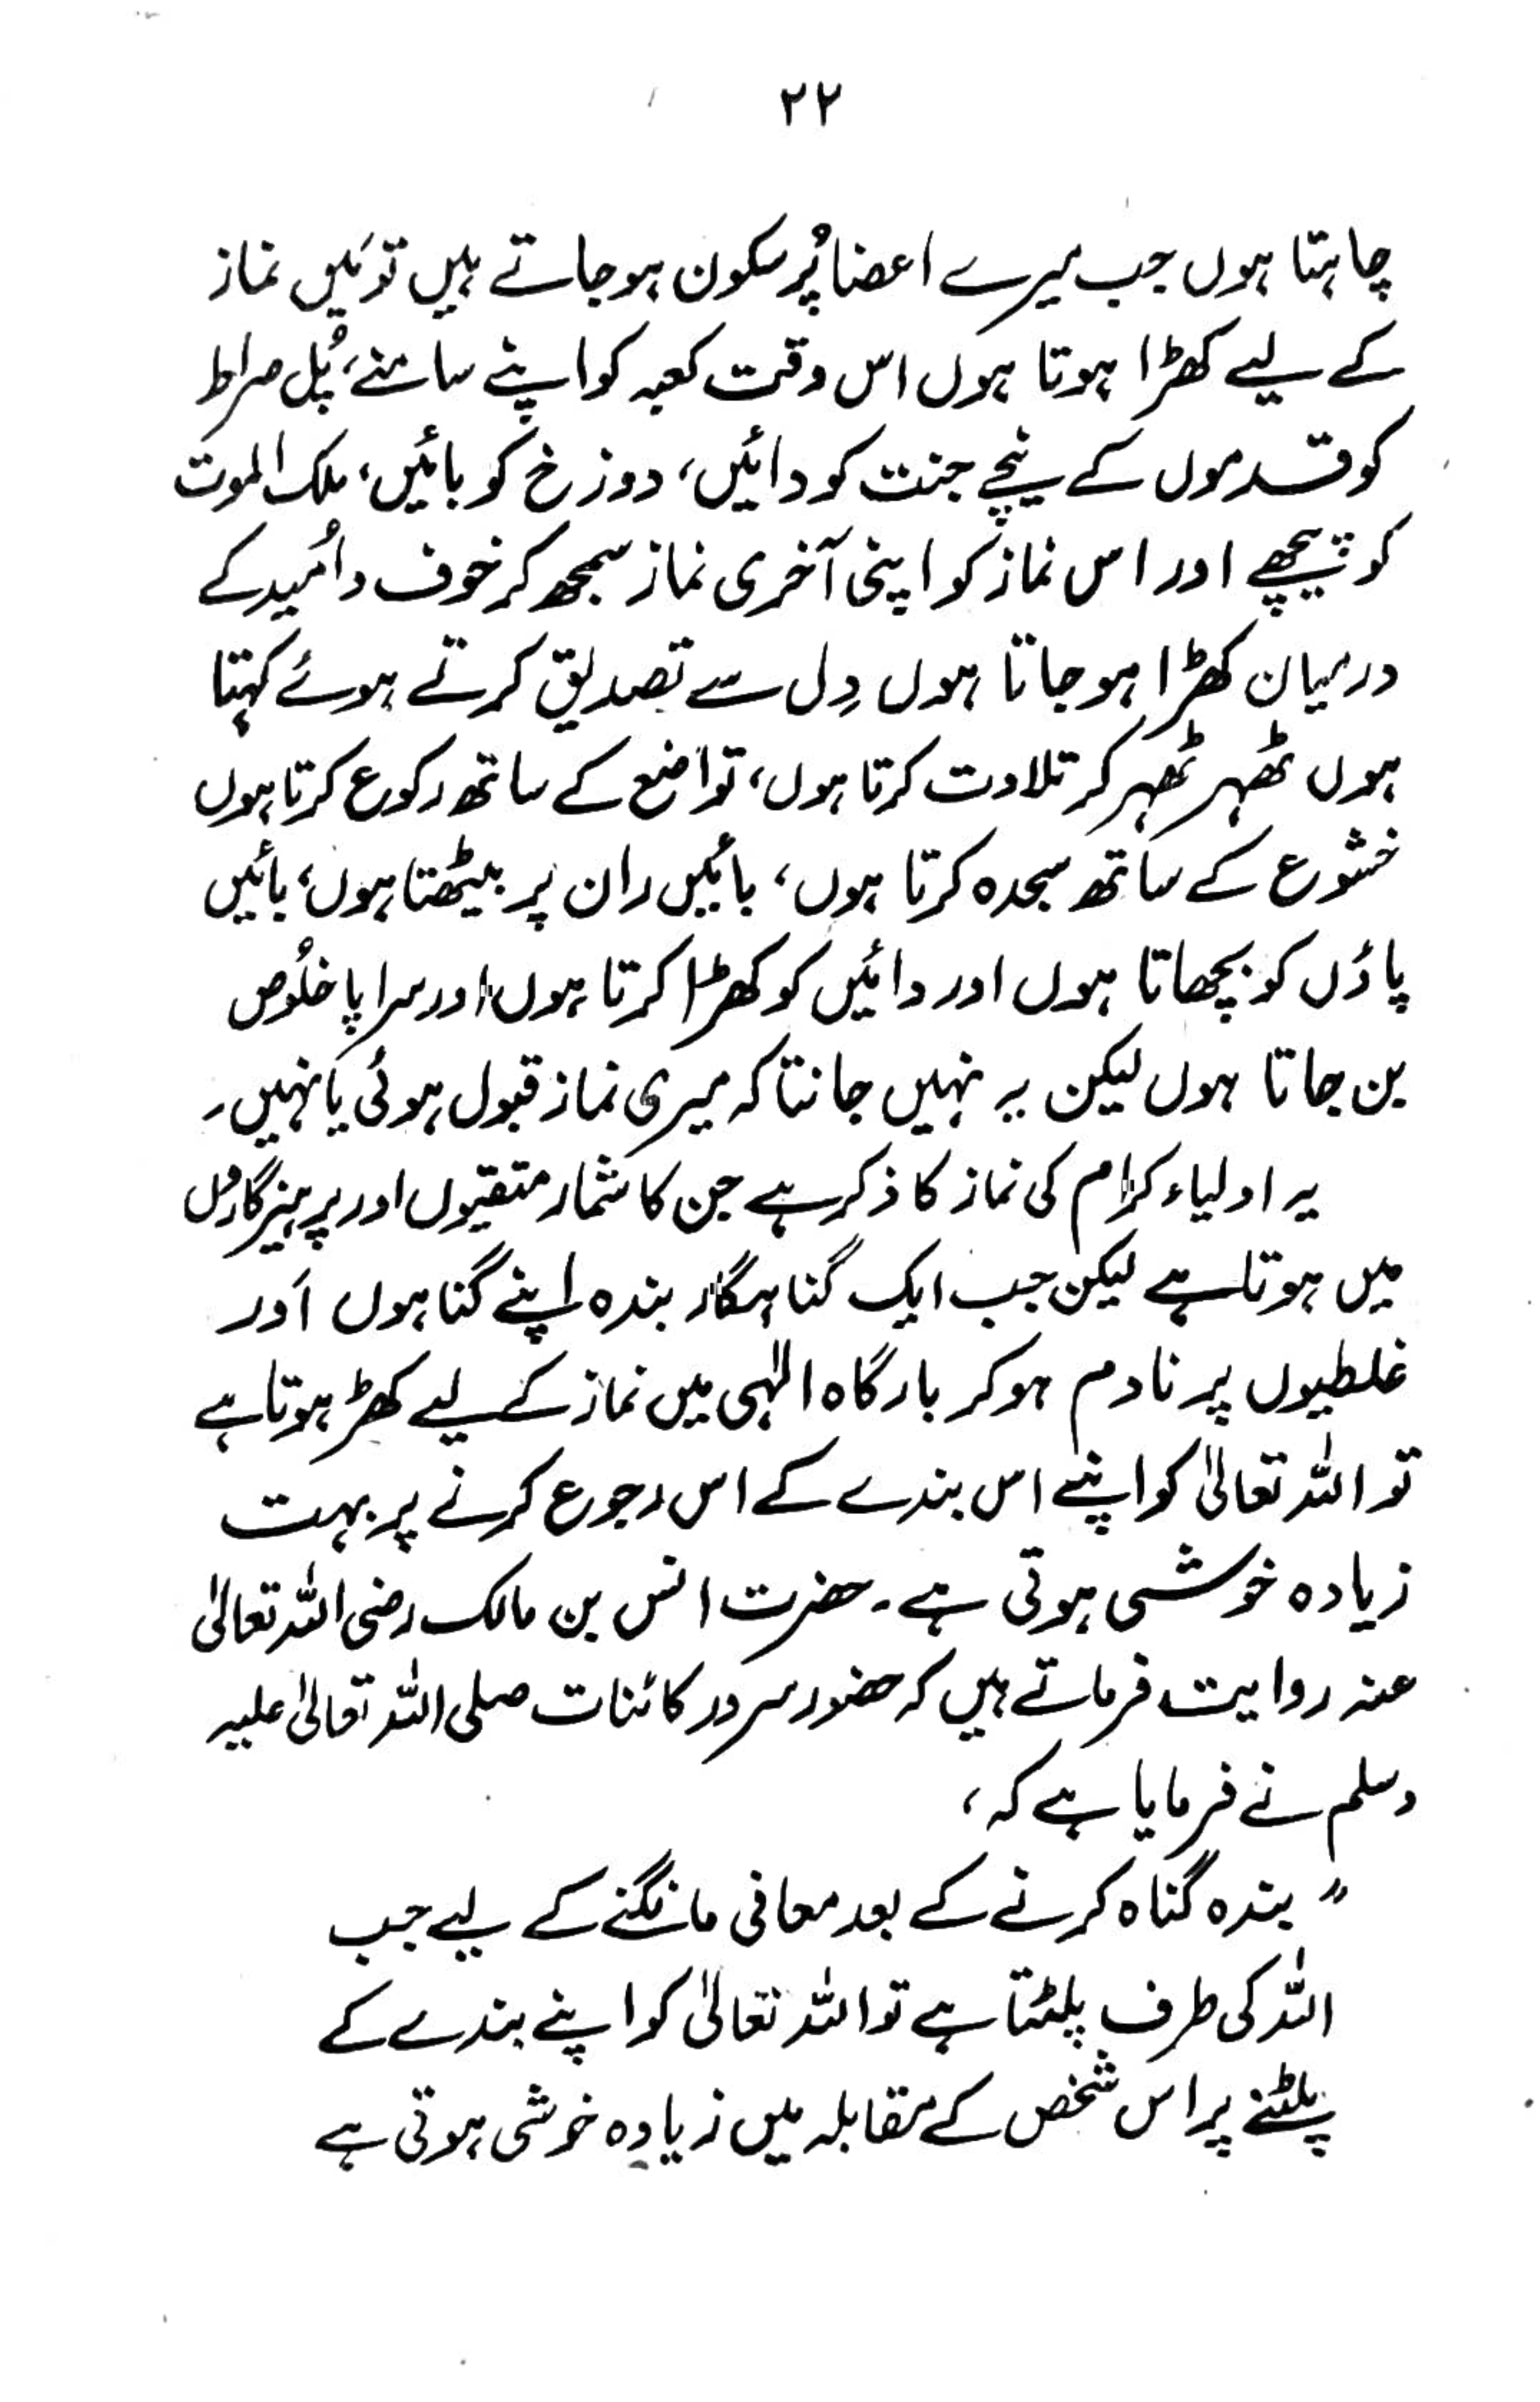 ۲۲
چاہتا ہوں جب میرے اعضا پُرسکون ہو جاتے ہیں تو مَیں نماز
کے لیے کھڑا ہوتا ہوں اس وقت کعبہ کو اپنے سامنے، پُل صراط
کو قدموں کے نیچے جنت کو دائیں، دوزخ کو بائیں، ملک الموت
کو پیچھے اور اس نماز کو اپنی آخری نماز سمجھ کر خوف و اُمید کے
درمیان کھڑا ہو جاتا ہوں دِل سے تصدیق کرتے ہوئے کہتا
ہوں ٹھہر ٹھہر کر تلاوت کرتا ہوں، تواضع کے ساتھ رکوع کرتا ہوں
خشوع کے ساتھ سجدہ کرتا ہوں، بائیں ران پر بیٹھتا ہوں، بائیں
پاؤں کو بچھاتا ہوں اور دائیں کو کھڑا کرتا ہوں اور سراپا خلُوص
بن جاتا ہوں لیکن یہ نہیں جانتا کہ میری نماز قبول ہوئی یا نہیں۔
یہ اولیاء کرام کی نماز کا ذکر ہے جن کا شمار متقیوں اور پرہیزگاروں
میں ہوتا ہے لیکن جب ایک گناہگار بندہ اپنے گناہوں اَور
غلطیوں پر نادم ہو کر بارگاہ الٰہی میں نماز کے لیے کھڑ ہوتا ہے
تو اللہ تعالیٰ کو اپنے اس بندے کے اس رجوع کرنے پر بہت
زیادہ خوشی ہوتی ہے۔ حضرت انس بن مالک رضی اللہ تعالیٰ
عنہ روایت فرماتے ہیں کہ حضور سرور کائنات صلی اللہ تعالیٰ علیہ
وسلم نے فرمایا ہے کہ،
”بندہ گناہ کرنے کے بعد معافی مانگنے کے لیے جب
اللہ کی طرف پلٹتا ہے تو اللہ تعالیٰ کو اپنے بندے کے
پلٹنے پر اس شخص کے مقابلہ میں زیادہ خوشی ہوتی ہے